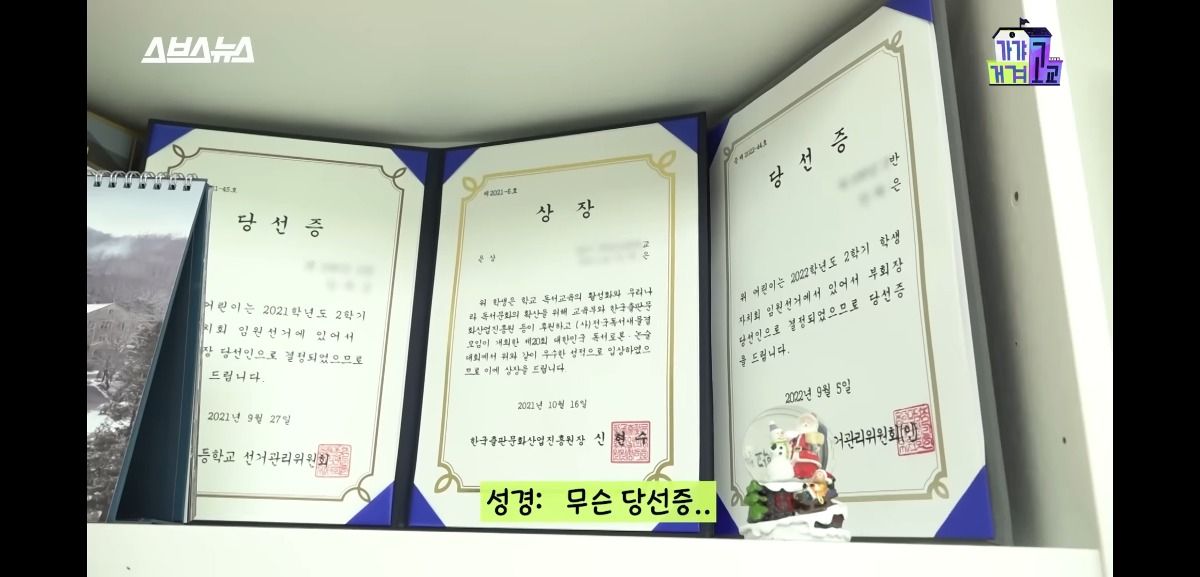 스브스뉴스
가갸
거겨
고교
1-45.호
당 선 증
어린이는 2021학년도 2학기
치회 임원선거에 있어서
장 당선인으로 결정되었으므로
드립니다.
2021년 9월 27일
등학교 선거관리위원회
제 2021-6.호
상 장
은 상
교
은
위 학생은 학교 독서교육의 활성화와 우리나
라 독서문화의 확산을 위해 교육부와 한국출판문
화산업진흥원 등이 후원하고 (사)전국독서새물결
모임이 개최한 제20회 대한민국 독서토론·논술
대회에서 위와 같이 우수한 성적으로 입상하였으
므로 이에 상장을 드립니다.
2021년 10월 16일
한국출판문화산업진흥원장 신 현 수
제 2022-44.호
당 선 증
반
은
위 어린이는 2022학년도 2학기 학생
자치회 임원선거에서 있어서 부회장
당선인으로 결정되었으므로 당선증
을 드립니다.
2022년 9월 5일
거관리위원회
성경: 무슨 당선증..